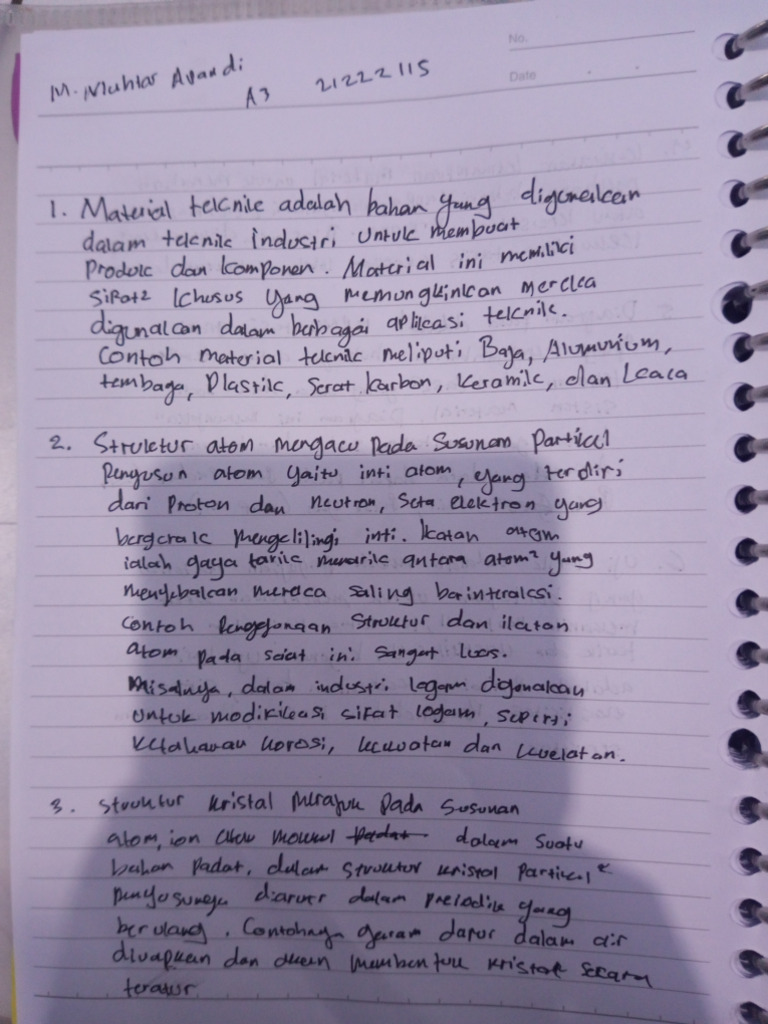 No.
Date
M. Muhtar Avandi
A3 21222115
1. Material teknik adalah bahan yang digunakan
dalam teknik industri untuk membuat
Produk dan komponen. Material ini memiliki
sifat2 khusus yang memungkinkan mereka
digunakan dalam berbagai aplikasi teknik.
Contoh material teknik meliputi Baja, Alumunium,
tembaga, Plastik, Serat karbon, keramik, dan kaca
2. Struktur atom mengacu pada Susunan Partikel
Penyusun atom yaitu inti atom, yang terdiri
dari Proton dan neutron, Seta elektron yang
bergerak mengelilingi inti. Ikatan atom
ialah gaya tarik menarik antara atom² yang
menyebabkan mereca saling berinteraksi.
Contoh Penggunaan Struktur dan ikatan
atom pada saat ini sangat luas.
Misalnya, dalam industri logam digunakan
Untuk modifikasi sifat logam, seperti
Ketahanan korosi, kekuatan dan kuelatan.
3. Struktur kristal merajuk Pada Susunan
atom, ion atau molekul dalam Suatu
bahan Padat, dalam Struktur kristal Partikel²
penyusunnya diatur dalam preiodik yang
berulang. Contohnya garam dapur dalam air
diuapkan dan akan membentuk kristal secara
teratur